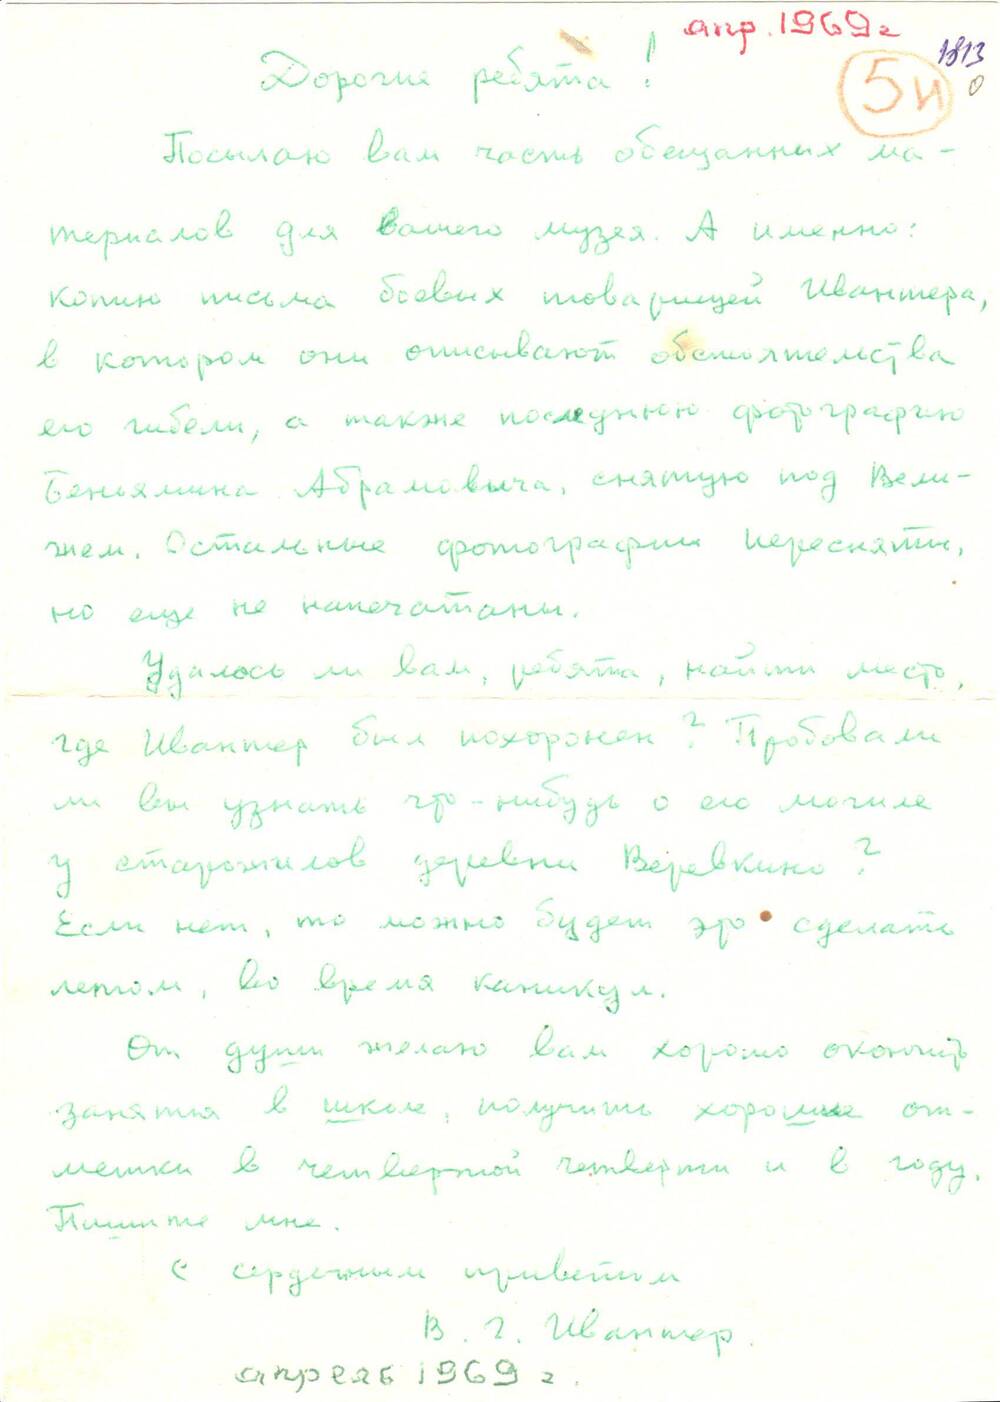 апр. 1969 г
1813
0
5и
Дорогие ребята!
Посылаю вам часть обещанных ма-
териалов для вашего музея. А именно:
копию письма боевых товарищей Ивантера,
в котором они описывают обстоятельства
его гибели, а также последнюю фотографию
Беньямина Абрамовыча, снятую под Вели-
жем. Остальные фотографии пересняты,
но еще не напечатаны.
Удалось ли вам, ребята, найти место,
где Ивантер был похоронен? Пробовали
ли вы узнать что-нибудь о его могиле
у старожилов деревни Веревкино?
Если нет, то можно будет это сделать
летом, во время каникул.
От души желаю вам хорошо окончить
занятия в школе, получить хорошие от-
метки в четвертой четверти и в году.
Пишите мне.
С сердечным приветом
В. Г. Ивантер.
апрель 1969 г.